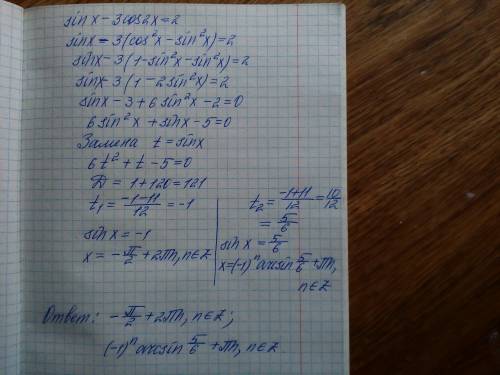 sinx - 3cos2x = 2
sinx - 3(cos²x - sin²x) = 2
sinx - 3(1 - sin²x - sin²x) = 2
sinx - 3(1 - 2sin²x) = 2
sinx - 3 + 6sin²x - 2 = 0
6sin²x + sinx - 5 = 0
Замена t = sinx
6t² + t - 5 = 0
D = 1 + 120 = 121
t₁ = (-1-11)/12 = -1
sinx = -1
x = -π/2 + 2πn, n∈Z
t₂ = (-1+11)/12 = 10/12
= 5/6
sinx = 5/6
x = (-1)ⁿ arcsin 5/6 + πn,
n∈Z
Ответ: -π/2 + 2πn, n∈Z;
(-1)ⁿ arcsin 5/6 + πn, n∈Z